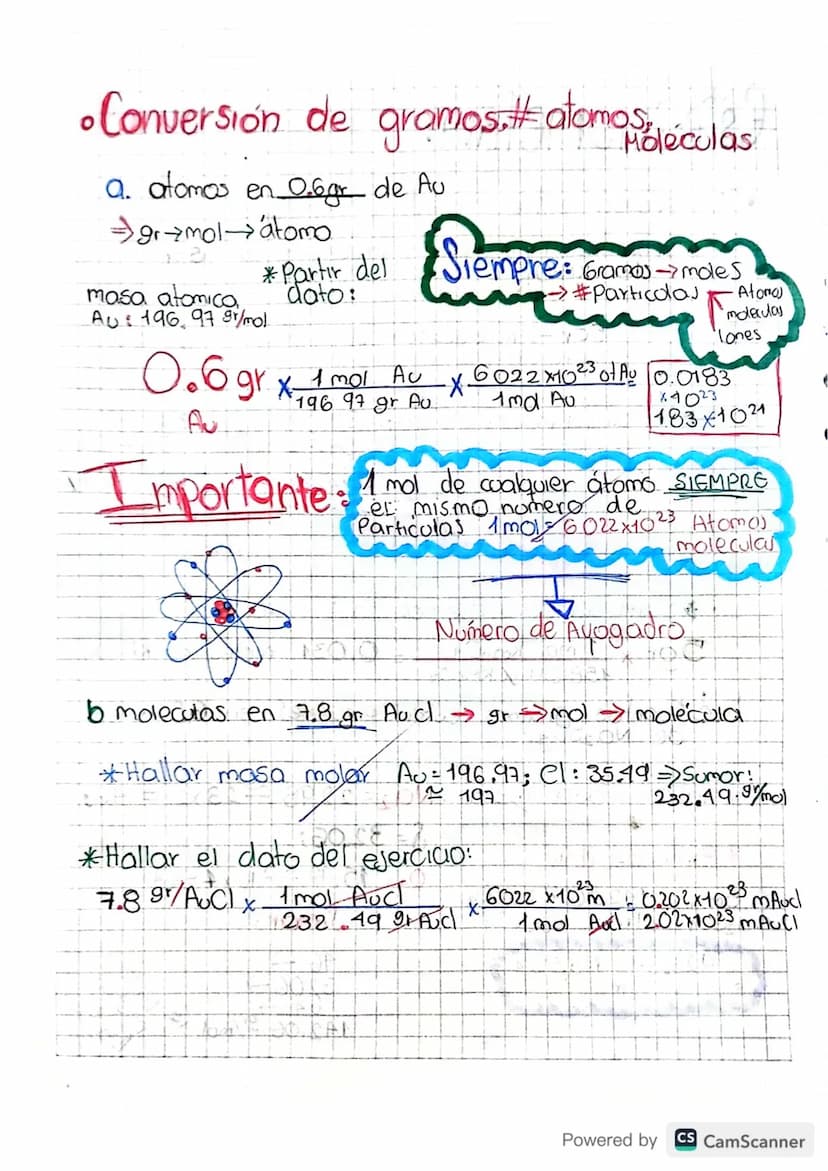 • Conversión de gramos, # atomos,
Moléculas
a. atomos en 0.6gr de Au
⇒ gr → mol → átomo
* Partir del
dato:
masa atomica
Au: 196.97 gr/mol
Siempre: Gramos → moles
→ # Particulas
Atomos
moleculas
Iones
0.6 gr x 1 mol Au x 6022 x10²³ at Au
196 97 gr Au 1mol Au
Au
0.0183
x10²³
1.83 x10²¹
Importante:
1 mol de cualquier átomo SIEMPRE
el mismo numero de
Particulas 1mol = 6.022x10²³ Atomos
moleculas
Número de Avogadro
b moleculas en 7.8 gr AuCl → gr ⇒ mol → molécula
* Hallar masa molar Au = 196.97; Cl: 35.49 ⇒ Sumar:
≈ 197 232.49 gr/mol
* Hallar el dato del ejercicio:
7.8 gr/AuCl x 1mol AuCl x 6022 x10²³ m = 0.202x10²³ mAucl
232.49 gr Aucl 1mol Aucl 2.02x10²³ mAuCl
Powered by CS CamScanner